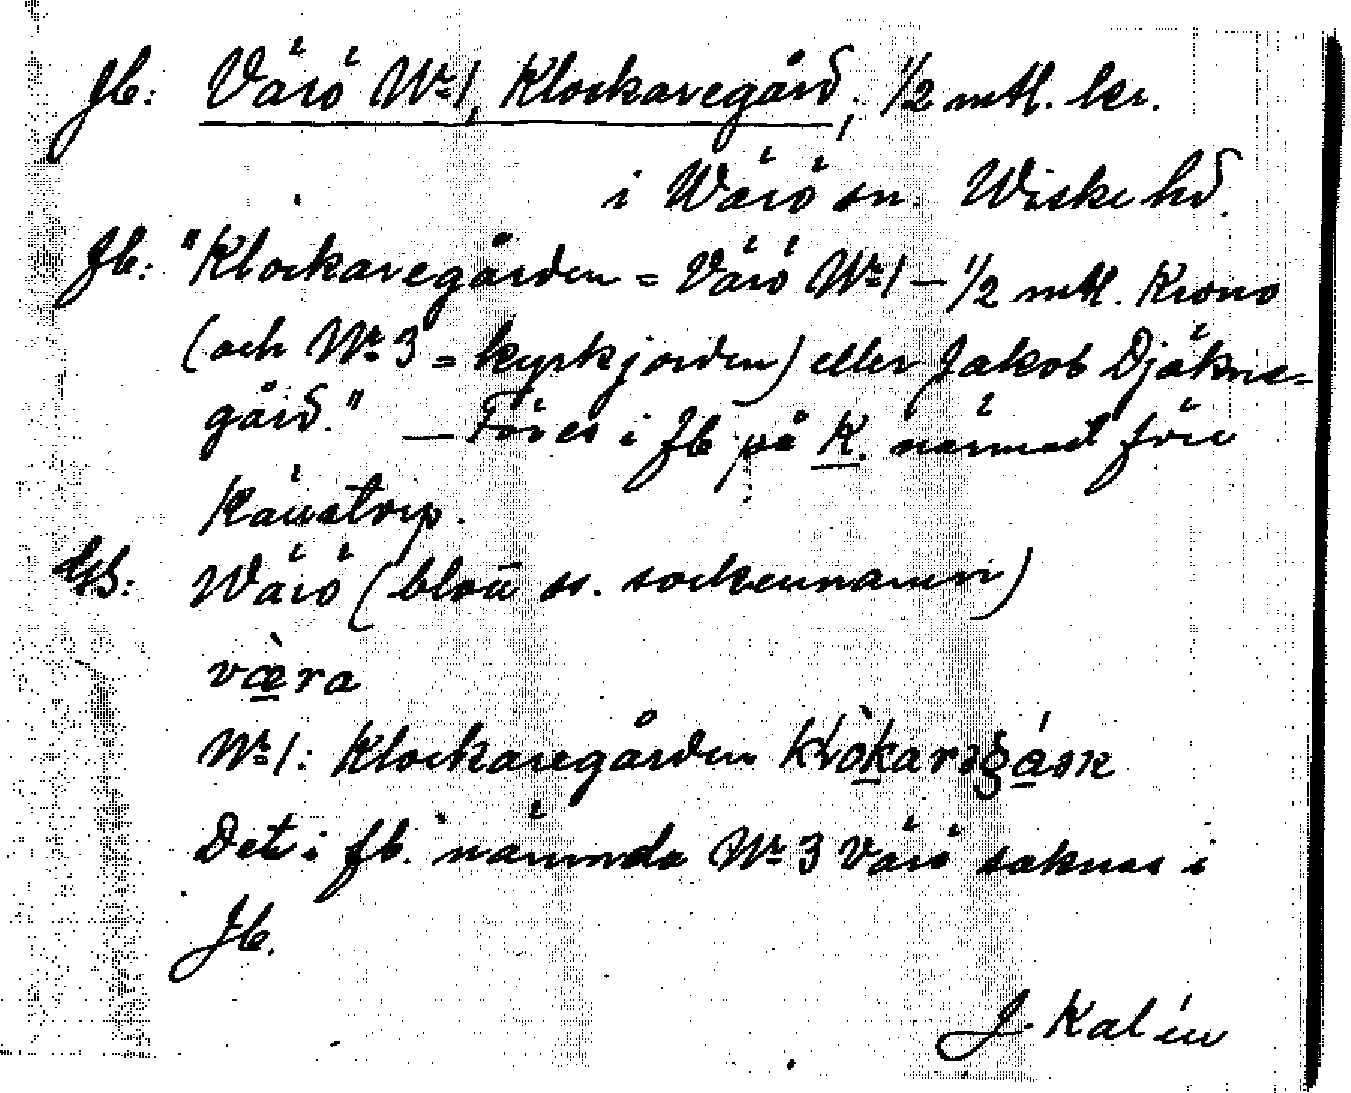 Jb: Värö Nº 1, Klockaregård, 1/2 mtl. kr.
i Värö sn. Wiske hd.
fb: "Klockaregården = Värö Nº 1 – 1/2 mtl. Krono
(och Nº 3 = kyrkjorden) eller Jakob Djäkne-
gård." — Föres i Jb på K. närmast före
Käustorp.
Gb: Wärö (blott ss. sockennamn)
væ̀ra
Nº 1: Klockaregården
Det i fb. nämnda Nº 3 Värö saknas i
Jb.
J. Kalén